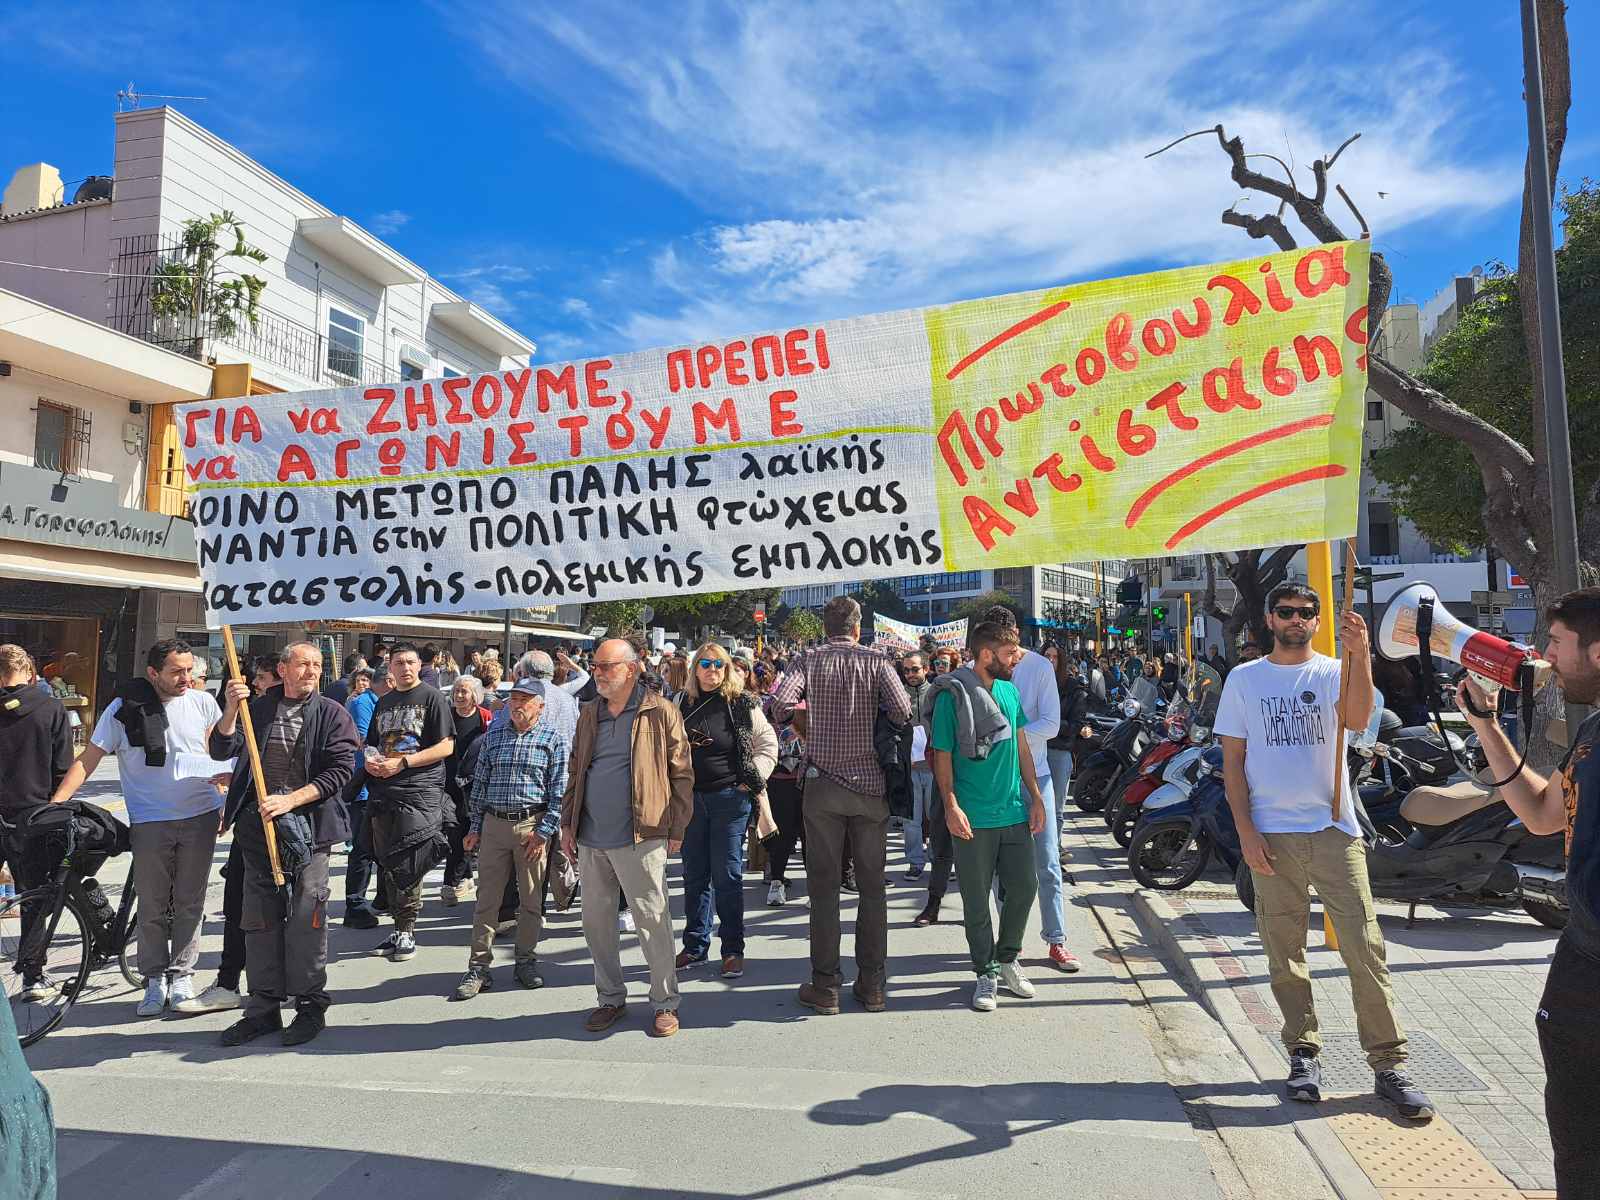 ΓΙΑ να ΖΗΣΟΥΜΕ, ΠΡΕΠΕΙ
να ΑΓΩΝΙΣΤΟΥΜΕ
ΚΟΙΝΟ ΜΕΤΩΠΟ ΠΑΛΗΣ λαϊκής
ΕΝΑΝΤΙΑ στην ΠΟΛΙΤΙΚΗ φτώχειας
καταστολής-πολεμικής εμπλοκής
Πρωτοβουλία
Αντίστασης
Α. Γαροφαλάκης
ΚΑΤΑΛΗΨΕΙΣ
ΝΤΑΛΑ ΣΤΗΝ
ΚΑΡΑΚΑΠΙΛΑ